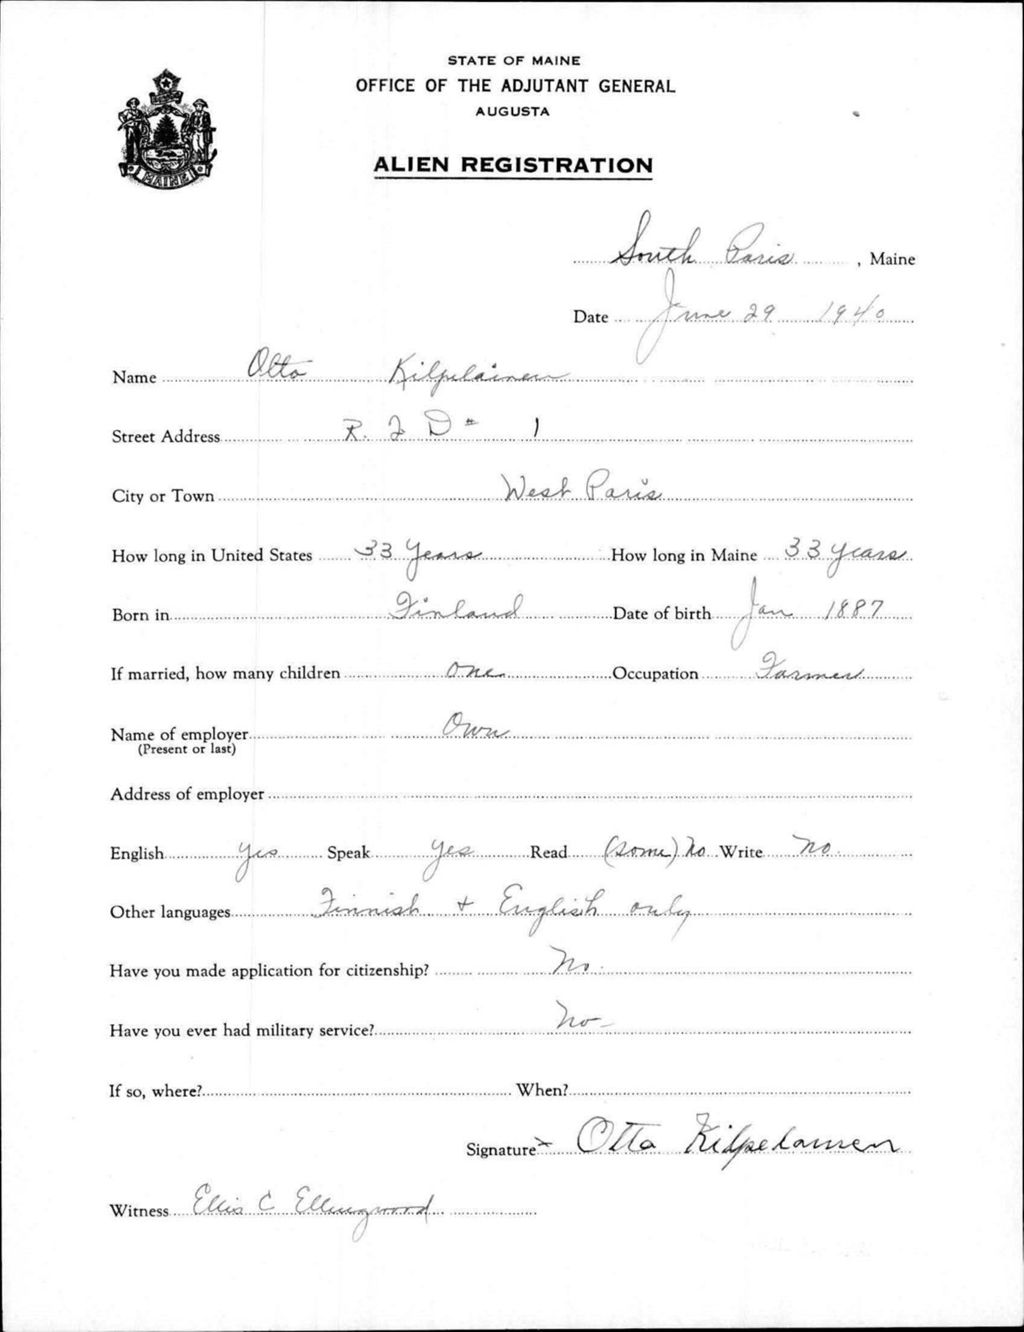 STATE OF MAINE
OFFICE OF THE ADJUTANT GENERAL
AUGUSTA
MAINE
ALIEN REGISTRATION
South Paris, Maine
Date June 29 1940
Name Otto Kilpelainen
Street Address R. F D # 1
City or Town West Paris
How long in United States 33 Years How long in Maine 33 years
Born in Finland Date of birth Jan 1887
If married, how many children one Occupation Farmer
Name of employer Own
(Present or last)
Address of employer
English yes Speak yes Read (some) No Write No.
Other languages Finnish + English only
Have you made application for citizenship? No.
Have you ever had military service? No
If so, where? When?
Signature x Otto Kilpelainen
Witness Ellis C Ellingwood